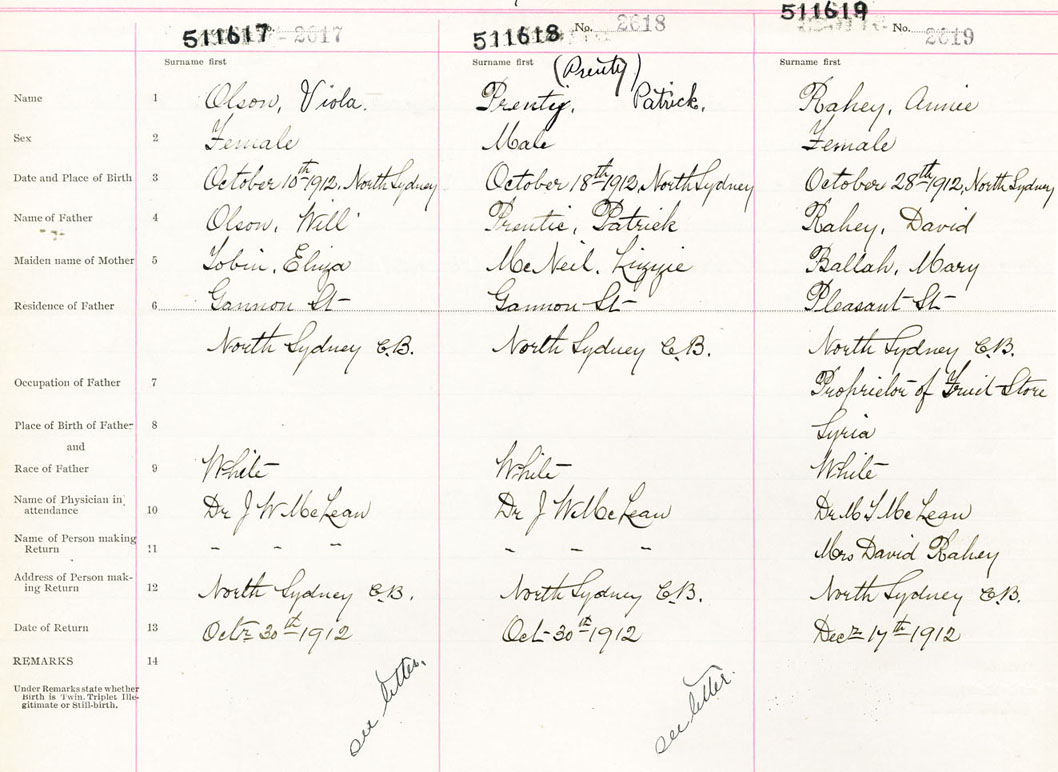 511617 No. 2617 511618 No. 2618 511619 No. 2619
Surname first Surname first (Prenty) Surname first
Name 1 Olson, Viola. Prentis, Patrick. Rahey, Annie
Sex 2 Female Male Female
Date and Place of Birth 3 October 10th 1912, North Sydney October 18th 1912, North Sydney October 28th 1912, North Sydney
Name of Father 4 Olson, Will Prentis, Patrick Rahey, David
Maiden name of Mother 5 Tobin, Eliza McNeil, Lizzie Ballah, Mary
Residence of Father 6 Gannon St Gannon St Pleasant St
North Sydney C.B. North Sydney C.B. North Sydney C.B.
Occupation of Father 7 Proprietor of Fruit Store
Place of Birth of Father 8 Syria
and
Race of Father 9 White White White
Name of Physician in
attendance 10 Dr J W McLean Dr J W McLean Dr M T McLean
Name of Person making
Return 11 - - - - - - Mrs David Rahey
Address of Person mak-
ing Return 12 North Sydney C.B. North Sydney C.B. North Sydney C.B.
Date of Return 13 Octr 30th 1912 Oct 30th 1912 Decr 17th 1912
REMARKS 14 see letter. see letter.
Under Remarks state whether
Birth is Twin, Triplet, Ille-
gitimate or Still-birth.